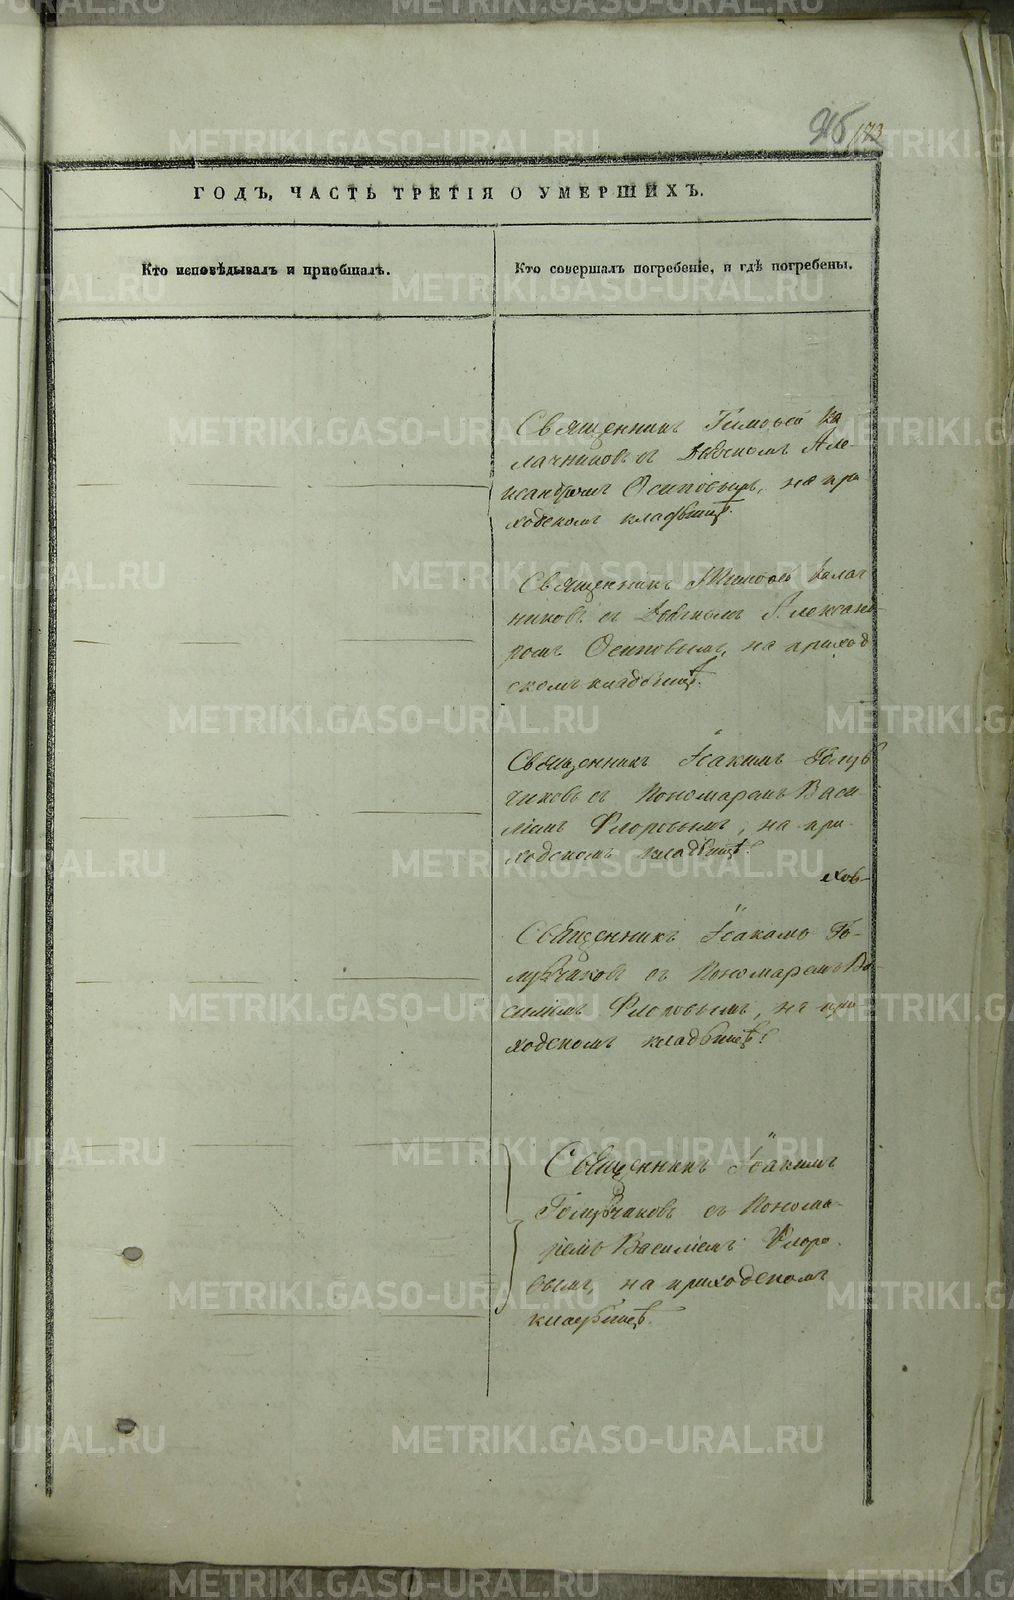 173
ГОДЪ, ЧАСТЬ ТРЕТІЯ О УМЕРШИХЪ.
Кто исповѣдывалъ и пріобщалъ.
Кто совершалъ погребеніе, и гдѣ погребены.
Священникъ Тимоѳей Ка
лачниковъ съ Дьячкомъ Але-
ксандромъ Осиповымъ, на при
ходскомъ кладбищѣ.
Священникъ Тимоѳей Калач
никовъ съ Дьячкомъ Александ-
ромъ Осиповымъ, на приход
скомъ кладбищѣ.
Священникъ Іоакимъ Голуб
чиковъ съ Пономаремъ Васи-
ліемъ Флоровымъ, на при-
ходскомъ кладбищѣ.
Священникъ Іоакимъ Го-
лубчиковъ съ Пономаремъ Ва-
силіемъ Флоровымъ, на при
ходскомъ кладбищѣ.
Священникъ Іоакимъ
Голубчиковъ съ Понома-
ремъ Василіемъ Флоро-
вымъ, на приходскомъ
кладбищѣ.
METRIKI.GASO-URAL.RU